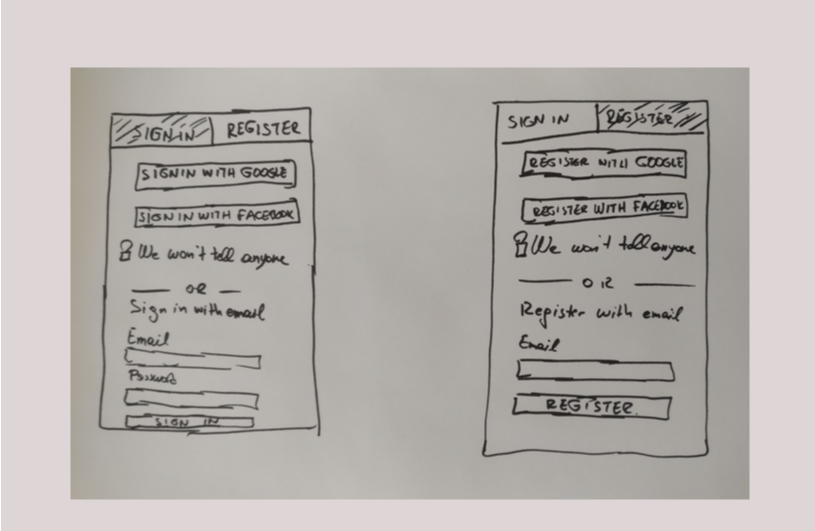 SIGN IN REGISTER
SIGN IN WITH GOOGLE
SIGN IN WITH FACEBOOK
We won't tell anyone
OR
Sign in with email
Email
Password
SIGN IN
SIGN IN REGISTER
REGISTER WITH GOOGLE
REGISTER WITH FACEBOOK
We won't tell anyone
OR
Register with email
Email
REGISTER